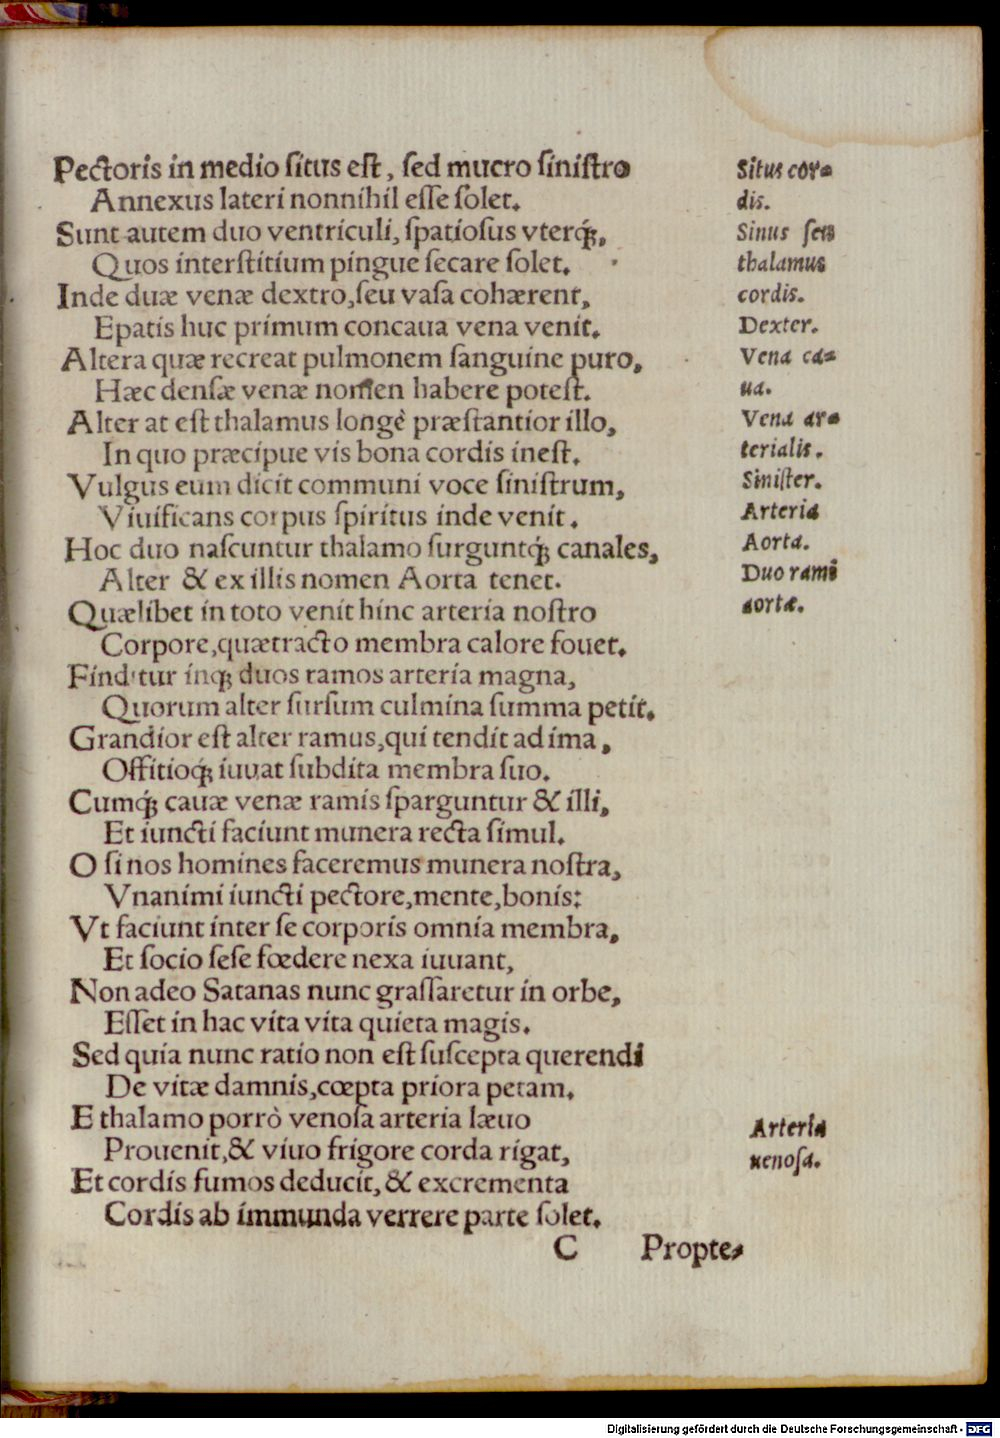 Pectoris in medio ſitus eſt, ſed mucro ſiniſtro
Annexus lateri nonnihil eſſe ſolet.
Sunt autem duo ventriculi, ſpatioſus vterq́;,
Quos interſtitium pingue ſecare ſolet.
Inde duæ venæ dextro, ſeu vaſa cohærent,
Epatis huc primum concaua vena venit.
Altera quæ recreat pulmonem ſanguine puro,
Hæc denſæ venæ nomen habere poteſt.
Alter at eſt thalamus longè præſtantior illo,
In quo præcipue vis bona cordis ineſt.
Vulgus eum dicit communi voce ſiniſtrum,
Viuificans corpus ſpiritus inde venit.
Hoc duo naſcuntur thalamo ſurguntq́; canales,
Alter & ex illis nomen Aorta tenet.
Quælibet in toto venit hinc arteria noſtro
Corpore, quæ tracto membra calore fouet.
Finditur inq; duos ramos arteria magna,
Quorum alter ſurſum culmina ſumma petit.
Grandior eſt alter ramus, qui tendit ad ima,
Offitioq́; iuuat ſubdita membra ſuo.
Cumq́; cauæ venæ ramis ſparguntur & illi,
Et iuncti faciunt munera recta ſimul.
O ſi nos homines faceremus munera noſtra,
Vnanimi iuncti pectore, mente, bonis:
Vt faciunt inter ſe corporis omnia membra,
Et ſocio ſeſe fœdere nexa iuuant,
Non adeo Satanas nunc graſſaretur in orbe,
Eſſet in hac vita vita quieta magis.
Sed quia nunc ratio non eſt ſuſcepta querendi
De vitæ damnis, cœpta priora petam.
E thalamo porrò venoſa arteria læuo
Prouenit, & viuo frigore corda rigat,
Et cordis fumos deducit, & excrementa
Cordis ab immunda verrere parte ſolet.
C Propte⸗
Situs cor⸗
dis.
Sinus ſeu
thalamus
cordis.
Dexter.
Vena ca⸗
ua.
Vena ar⸗
terialis.
Siniſter.
Arteria
Aorta.
Duo rami
aortæ.
Arteria
uenoſa.
Digitalisierung gefördert durch die Deutsche Forschungsgemeinschaft - DFG